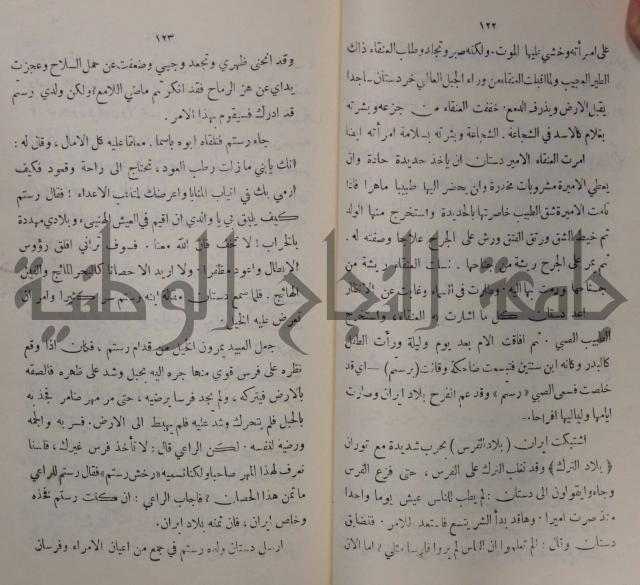 ١٢٢
على امرأته وخشي عليها الموت. ولكنه صبر وتجلد وطلب العنقاء ذاك
الطير العجيب ولما اقبلت العنقاء من وراء الجبل العالي خر دستان ساجدا
يقبل الارض ويذرف الدمع. خففت العنقاء من جزعه وبشرته
بغلام كالاسد في الشجاعة. الشجاعة وبشرته بسلامة امرأته ايضا
امرت العنقاء الامير دستان ان ياخذ حديدة حادة وان
يعطي الاميرة مشروبات مخدرة وان يحضر اليها طبيبا ماهرا فاذا
نامت الاميرة شق الطبيب خاصرتها بالحديدة واستخرج منها الولد
ثم خيط الشق ورتق الفتق ورش على الجرح علاجا وصفته له.
ثم يمر على الجرح ريشة من جناحها. نسلت العنقاء ريشة من
جناحها ورمت بها اليه وطارت في السماء وغابت عن الانظار
اعد دستان كل ما اشارت به العنقاء، واستخرج
الطبيب الصبي. ثم افاقت الام بعد يوم وليلة ورأت الطفل
كالبدر وكانه ابن سنتين فتبسمت ضاحكة وقالت (برستم) — اي قد
خلصت فسمي الصبي «رستم» وقد عم الفرح بلاد ايران وصارت
ايامها ولياليها افراحا..
اشتبكت ايران (بلاد الفرس) بحرب شديدة مع توران
(بلاد الترك) وقد تغلب الترك على الفرس، حتى فزع الفرس
وجاءوا يقولون الى دستان: لم يطب للناس عيش يوما واحدا
منذ صرت اميرا. وها قد بدأ الشر يتسع فاستعد للامر. فتضايق
دستان وقال: الم تعلموا ان الناس لم يروا فارسا مثلي؟ اما الآن
١٢٣
وقد انحنى ظهري وتجعد وجهي وضعفت عن حمل السلاح وعجزت
يداي عن هز الرماح فقد انكرتم ماضي اللامع؟ ولكن ولدي رستم
قد ادرك فسيقوم بهذا الامر.
جاء رستم فتلقاه ابوه باسما. معلقا عليه كل الآمال، وقال له:
انك يابني ما زلت رطب العود، تحتاج الى راحة وقعود فكيف
ارمي بك في انياب المنايا واعرضك لمتاعب الاعداء؟ فقال رستم
كيف يليق بي يا والدي ان اقيم في العيش الهنيء، وبلادي مهددة
بالخراب؟ لا تخف فان الله معنا. فسوف تراني افلق رؤوس
الابطال واعود مظفرا. ولا اريد الا حصانا كالبحر المائج والفيل
الهائج. فلما سمع دستان مقالة ابنه رستم سر كثيرا وامر ان
تعرض عليه الخيل.
جعل العبيد يمرون الخيل من قدام رستم، فكان اذا وقع
نظره على فرس قوي منها جره اليه بحبل وشد على ظهره فالصقه
بالارض فيتركه، ولم يجد فرسا يرضيه، حتى مر مهر ضامر فجذبه
بالحبل فلم يتحرك وشد عليه فلم يهبط الى الارض. فسر به والجمه
ورضيه لنفسه. لكن الراعي قال: لا تأخذ فرس غيرك، فلسنا
نعرف لهذا المهر صاحبا ولكنا نسميه «رخش رستم» فقال رستم للراعي
ما ثمن هذا الحصان؟ فاجاب الراعي: ان كنت رستم فخذه
وخلص ايران، فان ثمنه بلاد ايران.
ارسل دستان ولده رستم في جمع من اعيان الامراء وفرسان
جامعة النجاح الوطنية